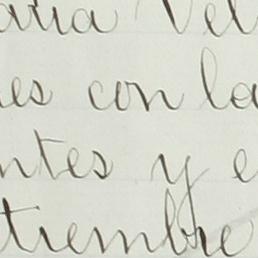 aria Vel
es con la
ntes y e
tre